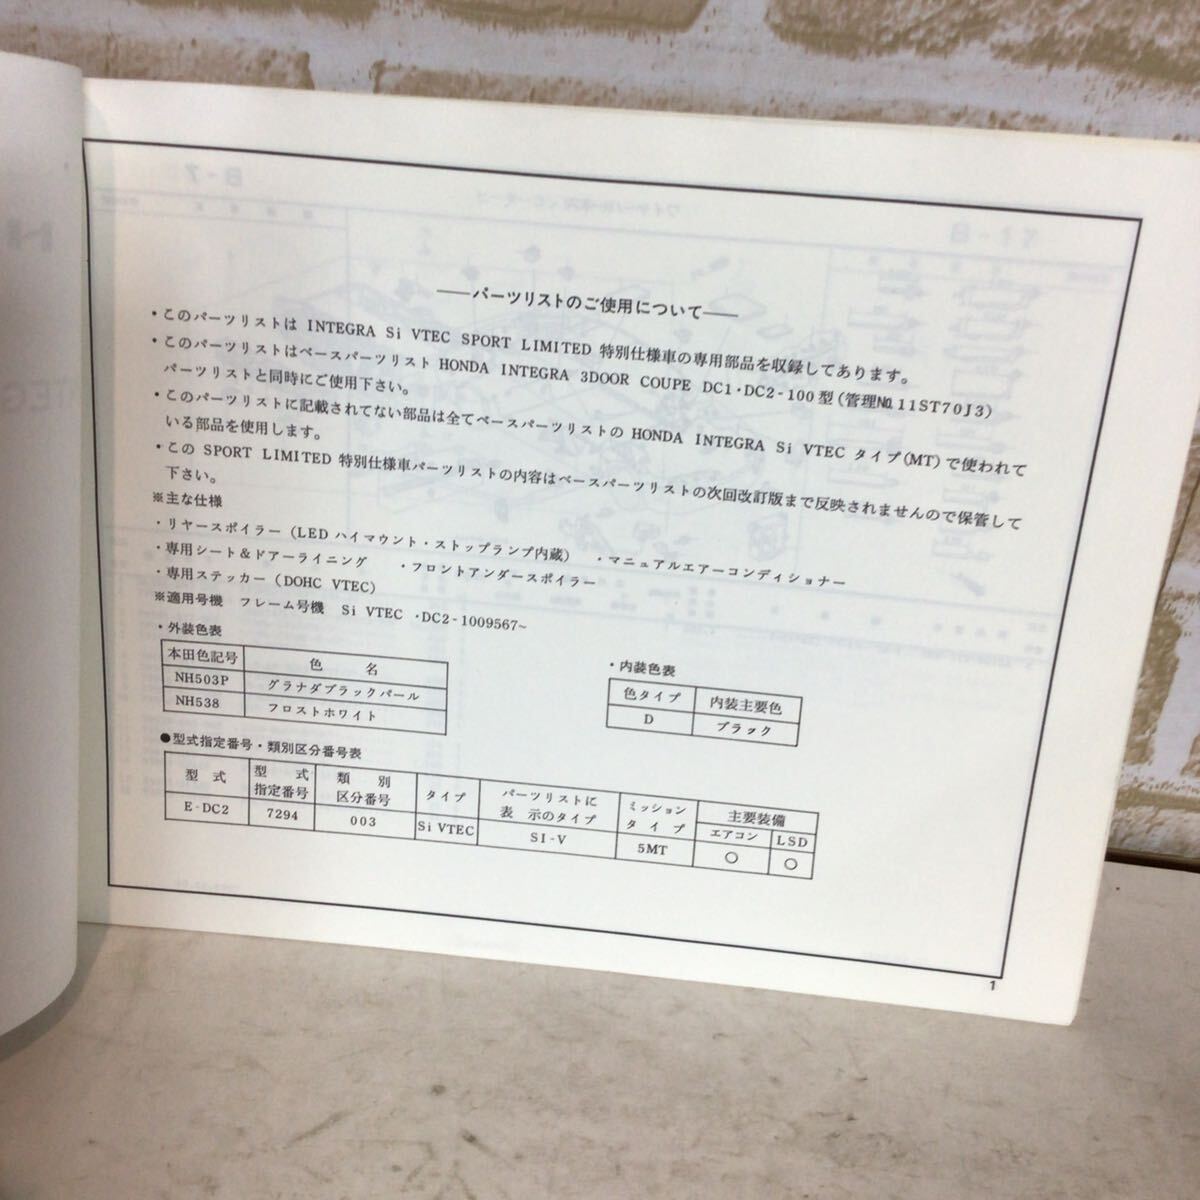 ——パーツリストのご使用について——
・このパーツリストは INTEGRA Si VTEC SPORT LIMITED 特別仕様車の専用部品を収録してあります。
・このパーツリストはベースパーツリスト HONDA INTEGRA 3DOOR COUPE DC1・DC2-100型(管理No.11ST70J3)
パーツリストと同時にご使用下さい。
・このパーツリストに記載されてない部品は全てベースパーツリストの HONDA INTEGRA Si VTEC タイプ(MT)で使われて
いる部品を使用します。
・この SPORT LIMITED 特別仕様車パーツリストの内容はベースパーツリストの次回改訂版まで反映されませんので保管して
下さい。
※主な仕様
・リヤースポイラー(LEDハイマウント・ストップランプ内蔵) ・マニュアルエアーコンディショナー
・専用シート&ドアーライニング ・フロントアンダースポイラー
・専用ステッカー(DOHC VTEC)
※適用号機 フレーム号機 Si VTEC ・DC2-1009567~
・外装色表
本田色記号 色 名
NH503P グラナダブラックパール
NH538 フロストホワイト
・内装色表
色タイプ 内装主要色
D ブラック
●型式指定番号・類別区分番号表
型 式 型 式 指定番号 類 別 区分番号 タイプ パーツリストに 表 示のタイプ ミッション タ イ プ 主要装備
エアコン LSD
E-DC2 7294 003 Si VTEC SI-V 5MT ○ ○
1